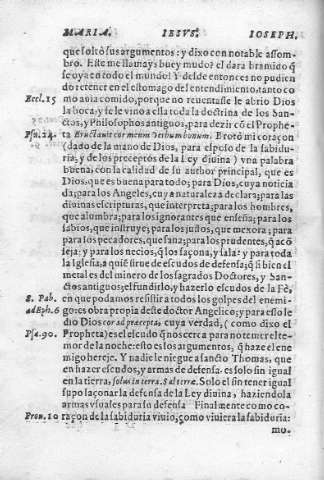 MARIA. IESVS. IOSEPH.
que soltò sus argumentos: y dixo con notable assom-
bro. Este me llamays buey mudo? el dara bramido q̃
se oya en todo el mundo! Y desde entonces no pudien
do retener en el estomago del entendimiento, tanto co
Eccl. 15 mo auia comido, porque no reuentasse le abrio Dios
la boca, y se le vino a ella toda la doctrina de los San-
ctos, y Philosophos antiguos, para dezir cõ el Prophe-
Psa. 44. ta Eructauit cor meum Verbum bonum. Brotò mi coraçon
(dado de la mano de Dios, para esposo de la sabidu-
ria, y de los preceptos de la Ley diuina) vna palabra
buena, con la calidad de su author principal, que es
Dios, que es buena para todo; para Dios, cuya noticia
da; para los Angeles, cuya naturaleza declara; para las
diuinas escripturas, que interpreta; para los hombres,
que alumbra; para los ignorantes que enseña; para los
sabios, que instruye; para los justos, que mexora; para
para los pecadores, que sana; para los prudentes, q̃ acõ
seja: y para los necios, q̃ los saçona, y sala: y para toda
la Iglesia, a quiẽ sirue de escudos de defensa; q̃ si bien el
metal es del minero de los sagrados Doctores, y San-
ctos antiguos; el fundirlo, y hazerlo escudos de la Fè,
S. Pab. en que podamos resistir a todos los golpes del enemi-
ad Eph. 6 go: es obra propia deste doctor Angelico; y para esso le
dio Dios cor ad præcepta, cuya verdad, ( como dixo el
Psa. 90. Propheta) es el escudo q̃ nos cerca para no temer el te-
mor de la noche: esto es los argumentos, q̃ hace el ene
migo hereje. Y nadie le niegue a sancto Thomas, que
en hazer escudos, y armas de defensa es solo sin igual
en la tierra, solus in terra. S al terræ. Solo el sin tener igual
supo saçonar la defensa de la Ley diuina, haziendola
armas vsuales para su defensa Finalmente como co-
Prou. 10 raçon de la sabiduria viuio, como viuiera la sabiduria:
mo.